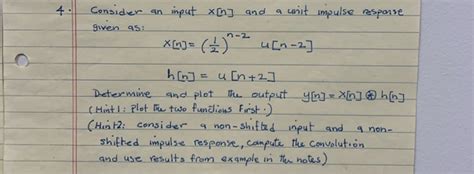 4. Consider an input x[n] and a unit impulse response
given as:
x[n] = (1/2)^{n-2} u[n-2]
h[n] = u[n+2]
Determine and plot the output y[n] = x[n] ⊛ h[n]
(Hint1: Plot the two functions first.)
(Hint2: consider a non-shifted input and a non-
shifted impulse response, compute the convolution
and use results from example in the notes)